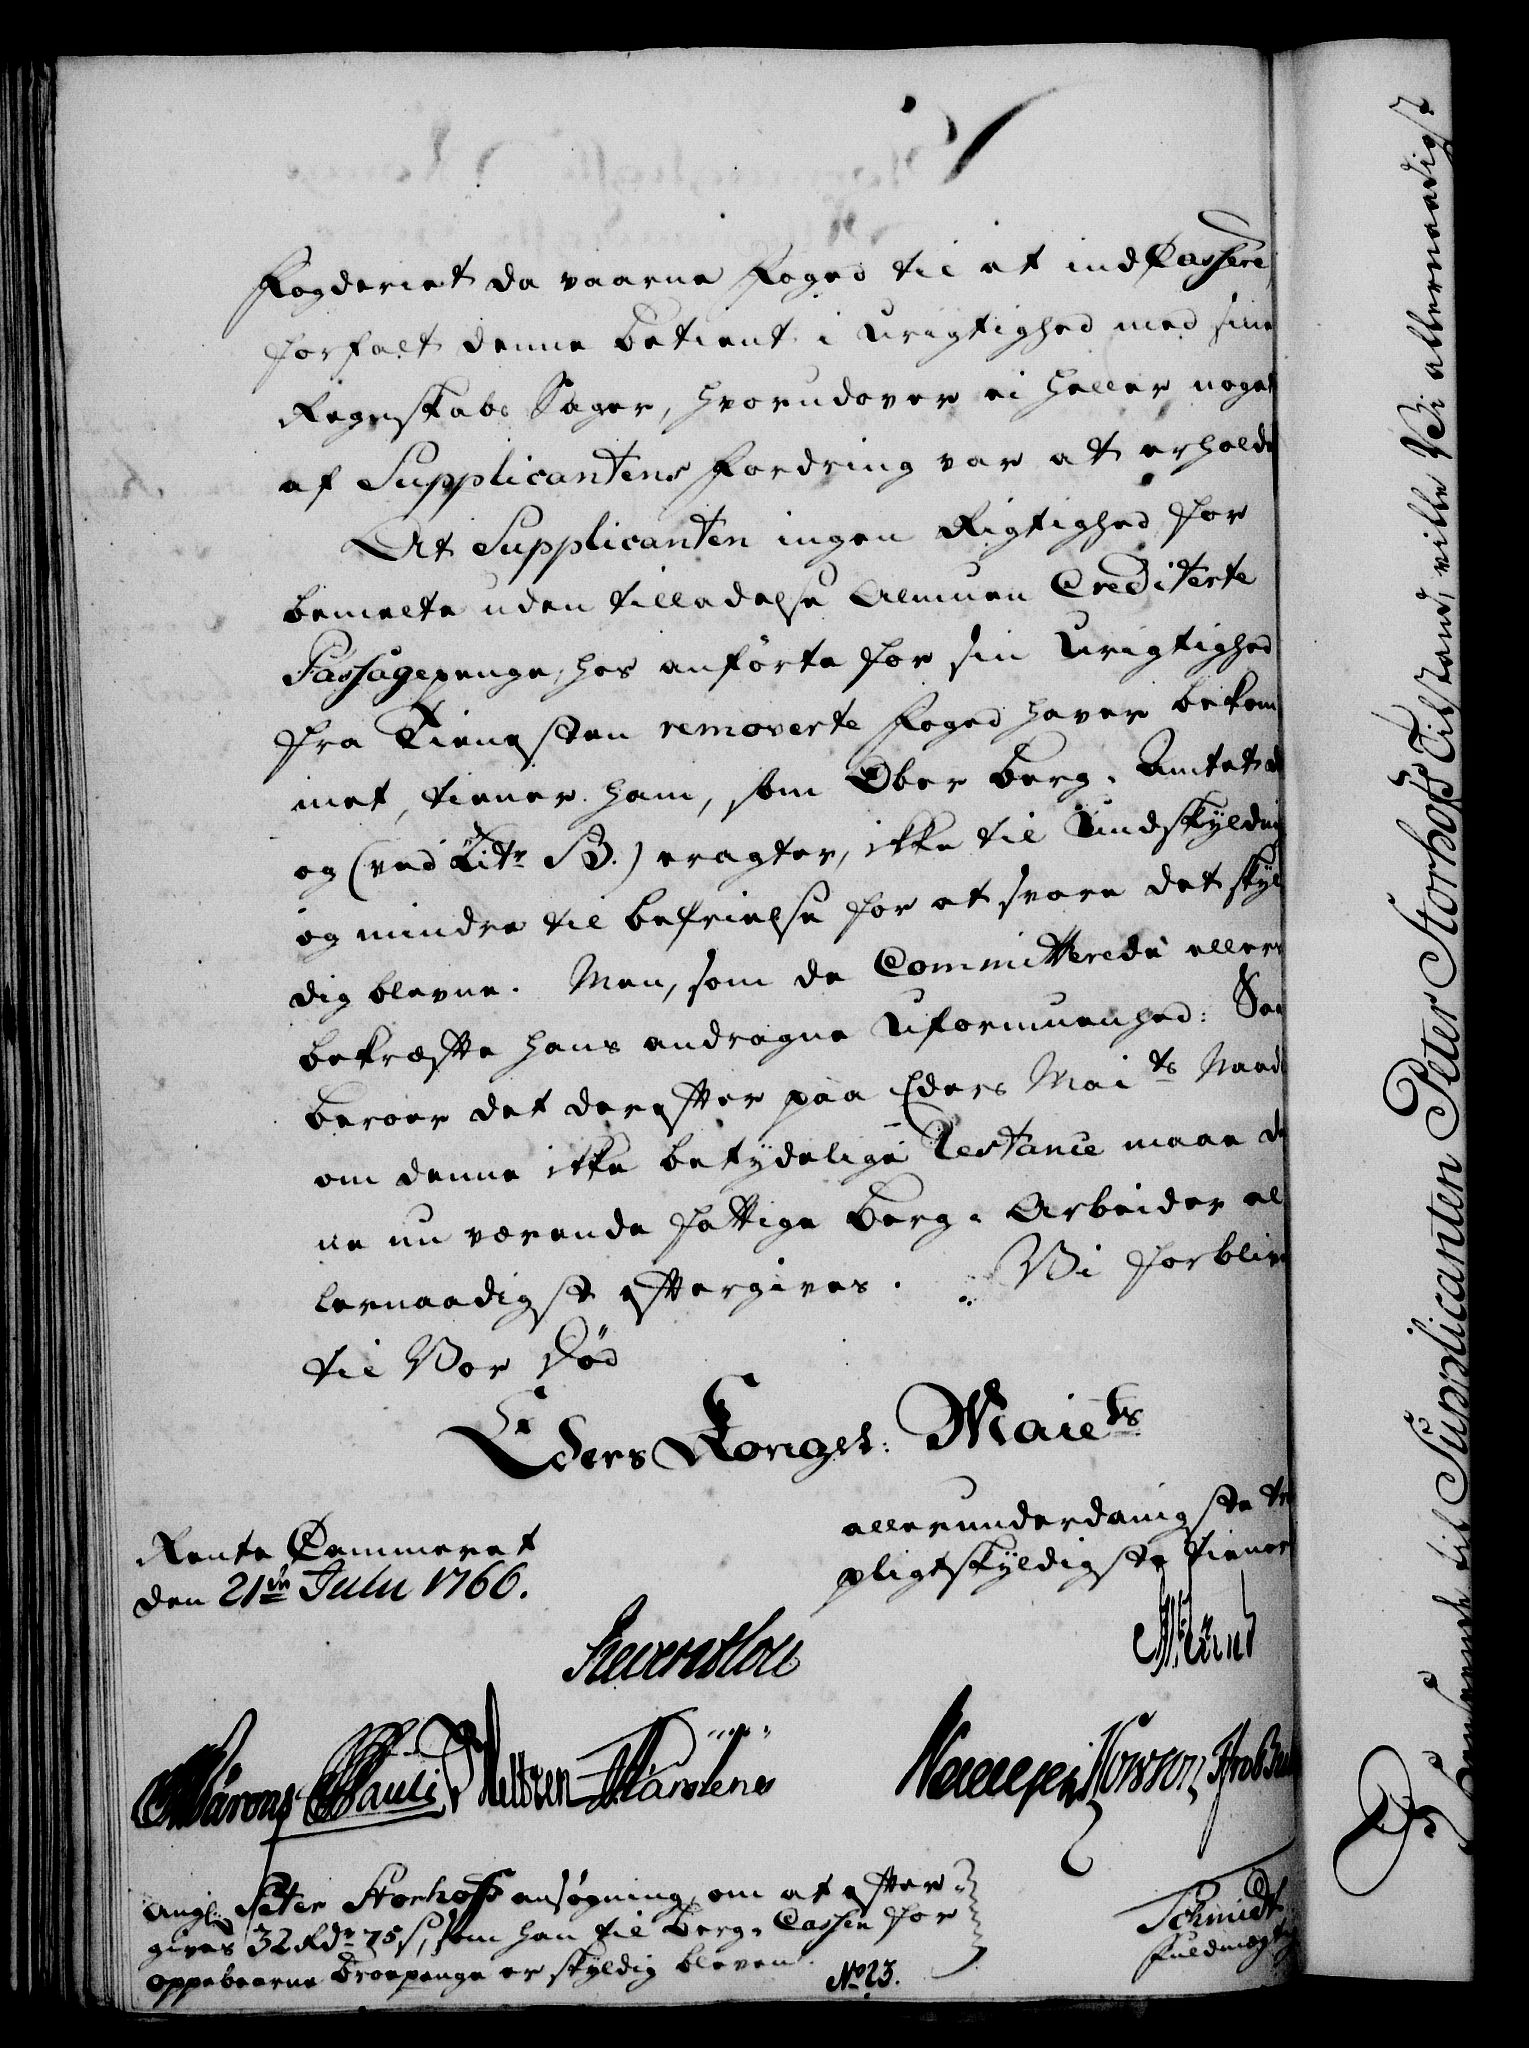 Fogderiet da værne Foged til at ind Cassere
forfalt denne betient i Urigtighed med sine
Regnskabs Sager, hvorudover ei heller noget
af Supplicantens fordring var at erholde
At Supplicanten ingen Rigtighed for
bemelte uden tilladelse Almuen Crediterte
Passagepenge, hos anførte for sin Urigtighed
fra Tienesten removerte Foged haver bekom
met, tiener ham, som Ober Berg-Amtet
og (ved Litr B.) eragter, ikke til Undskyldning
og mindre til befrielse for at svare det skyl
dig blevne. Men, som de Committerede
bekræfte hans andragne Uformuenhed: Saa
beroer det derefter paa Eders Maits Naade
om denne ikke betydelige Restance maae de
ne nu værende fattige Berg-Arbeider al
lernaadigst eftergives. Vi forblive
til Vor Død
Eders Kongel: Maiets
allerunderdanigste
pligtskyldigste tienere
Rente Cammeret
den 21de Julii 1766.
Pauli
Schmidt
Fuldmægtig
angl: Peter Storhoffs ansøgning, om at efter
gives 32 Rdr 75 s, som han til Berg-Cassen for
oppebaarne Broepenge er skyldig bleven.
No 23.
til Supplicanten Peter Storhofs Tilstand, ville Vi allernaadigst